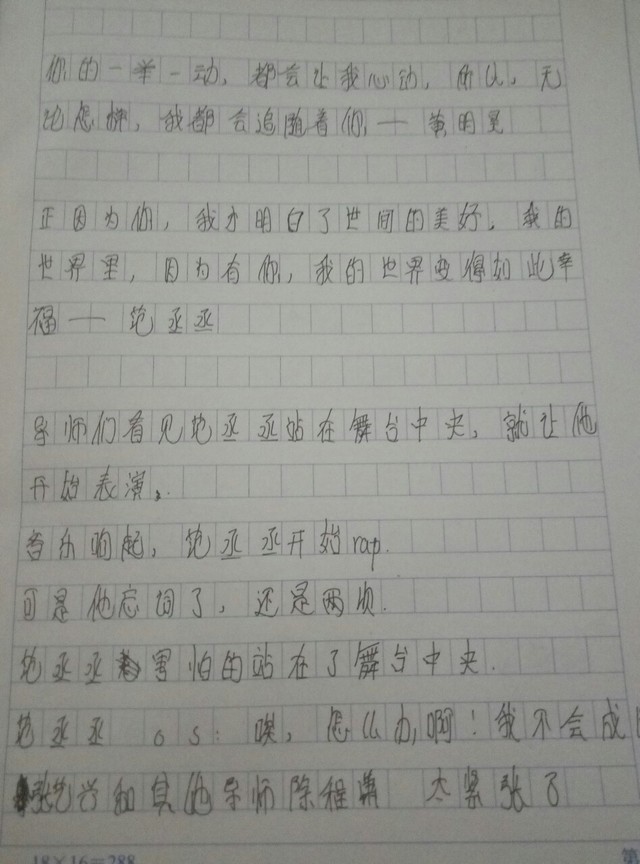 你的一举一动，都会让我心动，所以，无
论怎样，我都会追随着你，— 黄明昊
正因为你，我才明白了世间的美好，我的
世界里，因为有你，我的世界变得如此幸
福 — 范丞丞
导师们看见范丞丞站在舞台中央，就让他
开始表演，.
音乐响起，范丞丞开始rap.
可是他忘词了，还是两次.
范丞丞害怕的站在了舞台中央.
范丞丞 os：唉，怎么办啊！我不会成
张艺兴和其他导师 太紧张了
18×16=288
第